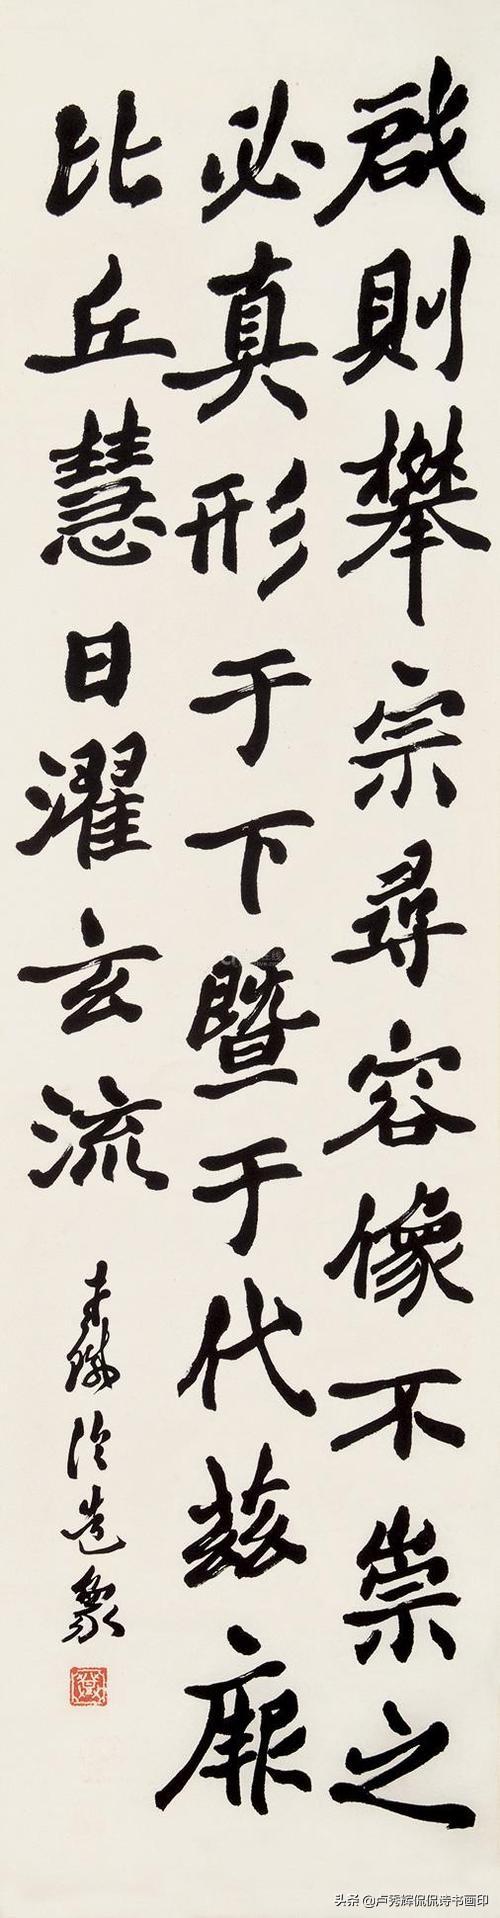 啟則攀宗尋容像不崇之
必真形于下暨于代茲
比丘慧日濯玄流
造象
头条 @卢秀辉侃侃诗书画印